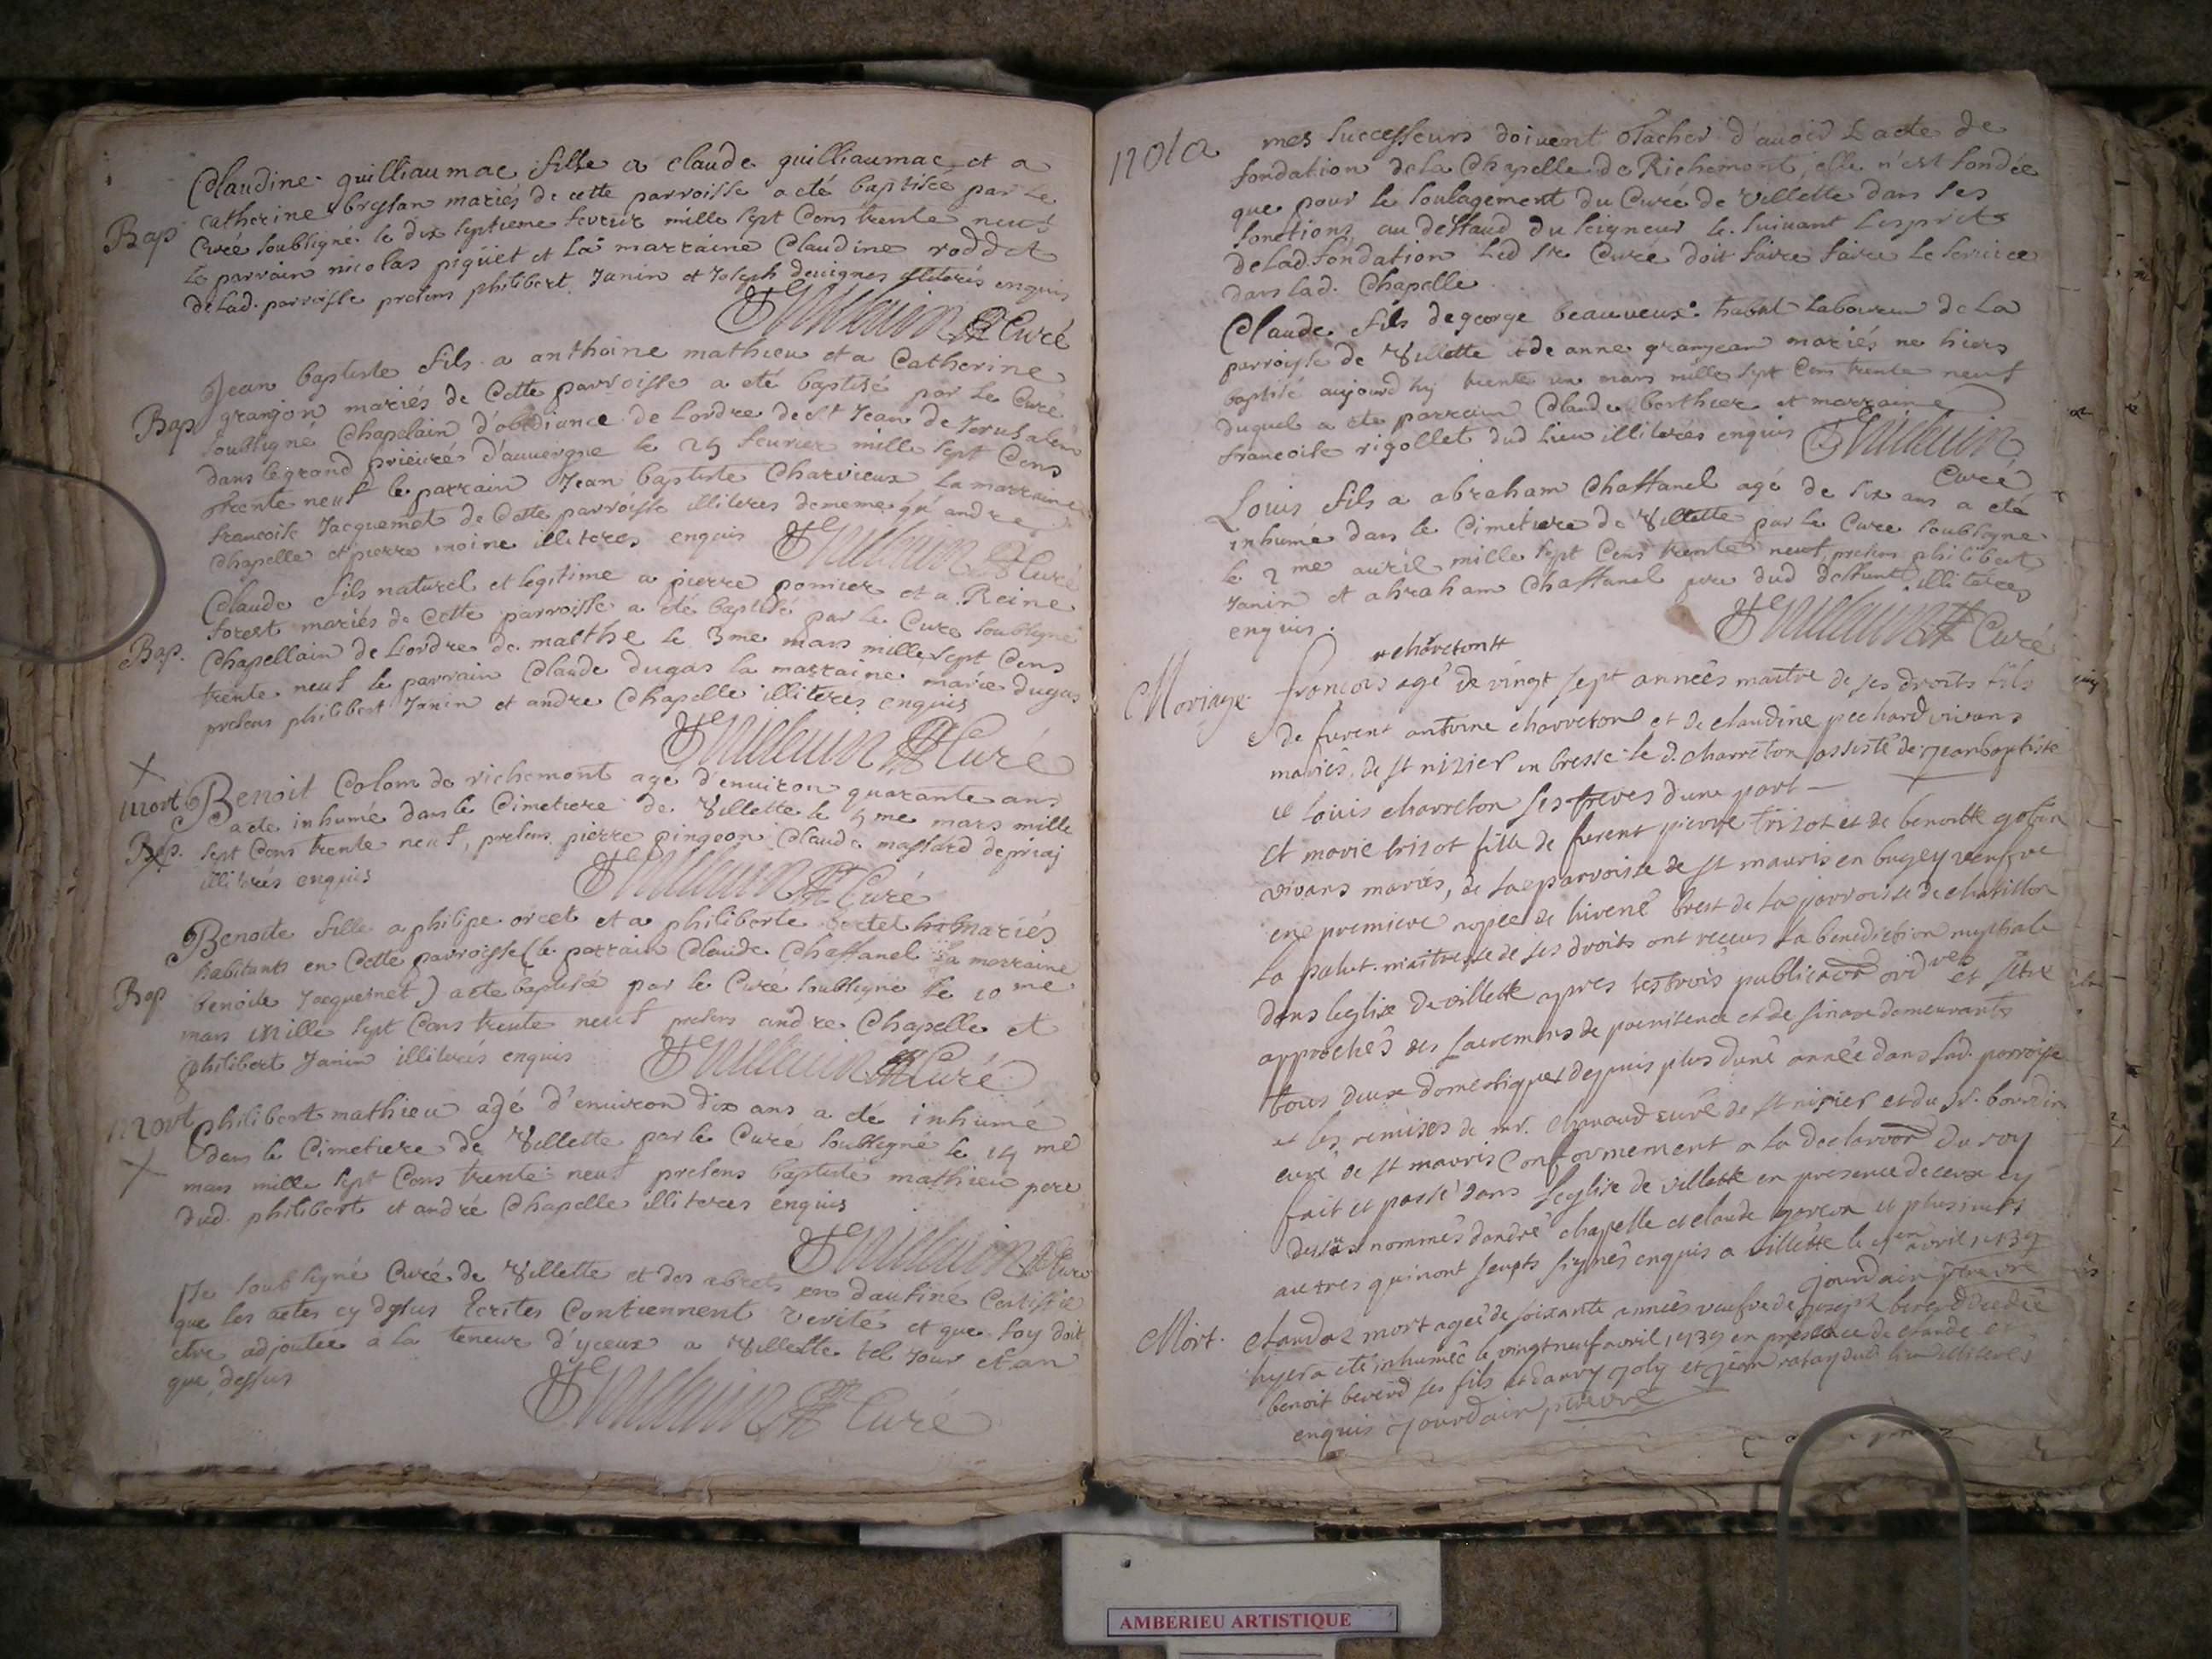 Claudine guilliaumac fille a claude guilliaumac et a
catherine breslan mariés de cette parroisse a eté baptisée par le
Bap
Curé soubsigné le dix septieme fevrier mille sept Cens trente neuf
le parrain nicolas piguet et la marraine Claudine roddet
de lad. parroisse presens philibert Janin et Joseph devignes illiterés enquis
Curé
Jean baptiste fils a anthoine mathieu et a Catherine
granjon mariés de Cette parroisse a eté baptisé par le Curé
Bap
soussigné Chapelain d'obediance de Lordre de st Jean de Jerusalem
dans le grand prieuré d'auvergne le 25 fevrier mille sept Cens
trente neuf le parrain Jean baptiste Charvieux La marraine
francoise Jacquemet de Cette parroisse illiteres de meme qu'andré
Chapelle et pierre moine illiteres enquis
Curé
Claude fils naturel et legitime a pierre pomier et a Reine
forest mariés de Cette parroisse a eté baptisé par le Curé soubsigné
Bap.
Chapellain de Lordre de malthe le 3me mars mille sept Cens
trente neuf le parrain Claude dugas la marraine marie dugas
presens philibert Janin et andre Chapelle illiteres enquis
Curé
mort
Benoit Colom de richemont agé d'environ quarante ans
a eté inhumé dans le Cimetiere de Villette le 4me mars mille
Bap.
sept Cens trente neuf, presens pierre pingeon Claude massard de priaj
illiterés enquis
Curé
Benoite fille a philipe orcet et a philiberte mariés
habitants en Cette parroisse (le parrain Claude Chaffanel la marraine
Bap
benoite Jacquemet) a eté baptisée par le Curé soubsigné le 10me
mars mille sept Cens trente neuf presens andre Chapelle et
philibert Janin illiterés enquis
Curé
mort
philibert mathieu agé d'environ dix ans a eté inhumé
dans le Cimetiere de Villette par le Curé soubsigné le 14me
mars mille sept Cens trente neuf presens baptiste mathieu pere
dud. philibert et andré Chapelle illiteres enquis
Curé
Je soubsigné Curé de Villette et des abrets en daufiné Certifie
que les actes cy dessus Ecrites Contiennent verité et que foy doit
etre adjoutée a la teneur d'yceux a Villette tel jour et an
que dessus
Curé
Nota
mes successeurs doivent Tacher d'avoir L'acte de
fondation de la Chapelle de Richemont, elle n'est fondée
que pour le soulagement du Curé de Villette dans ses
fonctions au deffaud du seigneur le. suivant Lesprit
de Lad. fondation Led sr Curé doit faire faire Le service
dans lad. Chapelle.
Claude fils de george beauveux habnt laboureur de La
parroisse de Villette et de anne granjean mariés ne hiers
baptisé aujourd'huj trente un mars mille sept Cens trente neuf
duquel a eté parrain Claude berthier et marraine
francoise rigollet dud lieu illiterés enquis
Curé
Louis fils a abraham Chaffanel agé de six ans a eté
inhumé dans le Cimetiere de Villette par le Curé soubsigné
le 2me avril mille sept Cens trente neuf, presens philibert
Janin et abraham Chaffanel pere dud deffunt illiterés
enquis.
Curé
charreton
Mariage.
francois agé de vingt sept années maitre de ses droits fils
de furent antoine charreton et de claudine pechard vivans
mariés, de st nizier en bresse le d. charreton assisté de jean baptiste
et louis charreton ses freres d'une part
Et marie trizot fille de furent pierre trizot et de benoitte gobin
vivans mariés, de la parroisse de st mauris en bugey veufve
en premiere nopce de brest de la parroisse de chatillon
la palut. maitresse de ses droits ont receus la benediction nuptiale
dans leglise de villette apres les trois publicaons ordres et s'etre
approchés des sacremens de poenitence et de demeurants
tous deux domestiques depuis plus d'une année dans lad. parroisse
et les remises de mr. curé de st nizier et du Sr. bourdin
curé de st mauris Conformement a la declaraon du roy
fait et passé dans l'eglise de villette en presence de ceux cy
dessus nommés d'andré chapelle et claude et plusieurs
autres qui n'ont scu signés enquis a villette le avril 1739
jourdain
Mort.
claudaz mort agée de soixante années veufve de joseph decedée
hyer a eté inhumée le vingt neuf avril 1739 en presence de claude et
benoit ses fils et d'anry joly et jean dud. lieu illiterés
enquis jourdain
AMBERIEU ARTISTIQUE